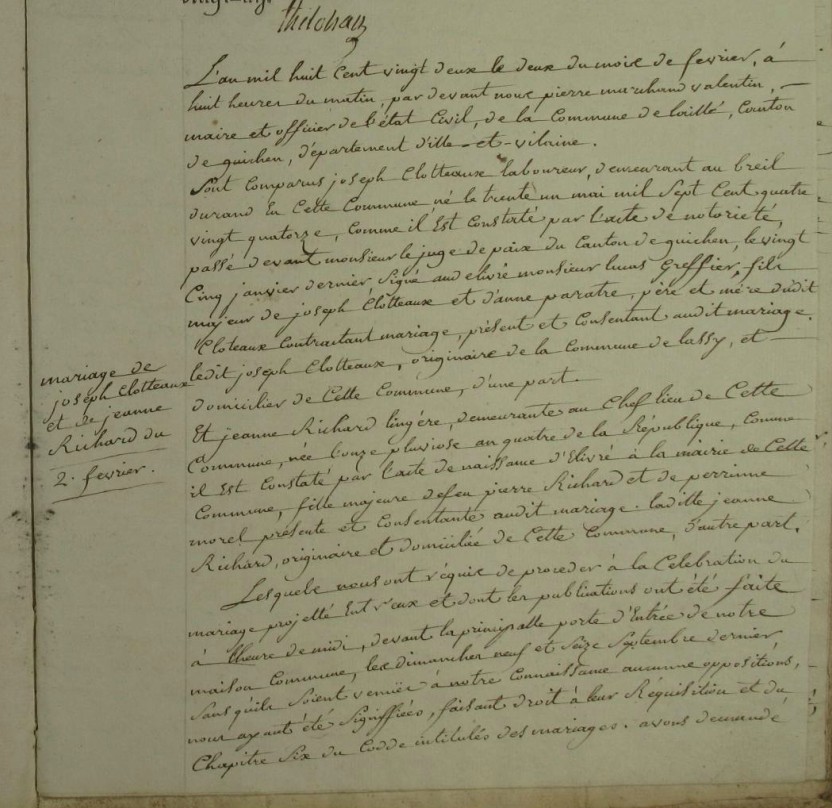 thilohan
L'an mil huit Cent vingt deux le deux du mois de fevrier, à
huit heures du matin, par devant nous pierre marchand valentin,
maire et officier de l'état Civil, de la Commune de laillé, Canton
de guichen, département d'ille-et-vilaine.
Sont Comparus joseph Clotteaux laboureur, demeurant au breil
durand en Cette Commune né le trente un mai mil Sept Cent quatre
vingt quatorze, Comme il Est Constaté par l'acte de notorieté,
passé devant monsieur le juge de paix du Canton de guichen, le vingt
Cinq janvier dernier, Signé and elivré monsieur Greffier, fils
majeur de joseph Clotteaux et d'anne paratre, père et mère dudit
Cloteaux Contraitant mariage, présent et Consentant audit mariage.
ledit joseph Clotteaux, originaire de la Commune de lassy, et
domicilier de Cette Commune, d'une part.
mariage de
joseph Clotteaux
et de jeanne
Richard du
2. fevrier.
Et jeanne Richard lingère, demeurante au Chef lieu de Cette
Commune, née l'onze pluviose an quatre de la République, Comme
il Est Constaté par l'acte de naissance d'Elivré à la mairie de Cette
Commune, fille majeure defeu pierre Richard et de perrinne
morel présente et Consentante audit mariage. laditte jeanne
Richard, originaire et domiciliée de Cette Commune, d'autre part.
Lesquels nous ont réquis de proceder à la Celebration du
mariage projetté Entr'eux et dont les publications ont été faite
à l'heure de midi, devant la principalle porte d'Entrée de notre
maison Commune, les dimanches neuf et Seize Septembre dernier,
Sans qu'ils Soient venuës à notre Connaissance aucunne oppositions,
nous ayant été Signiffiées, faisant droit à leur Réquisition et du
Chapitre Six du Codde intitulés des mariages. avons demandé